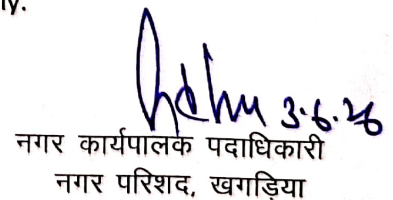 ly.
3.6.26
नगर कार्यपालक पदाधिकारी
नगर परिशद, खगड़िया